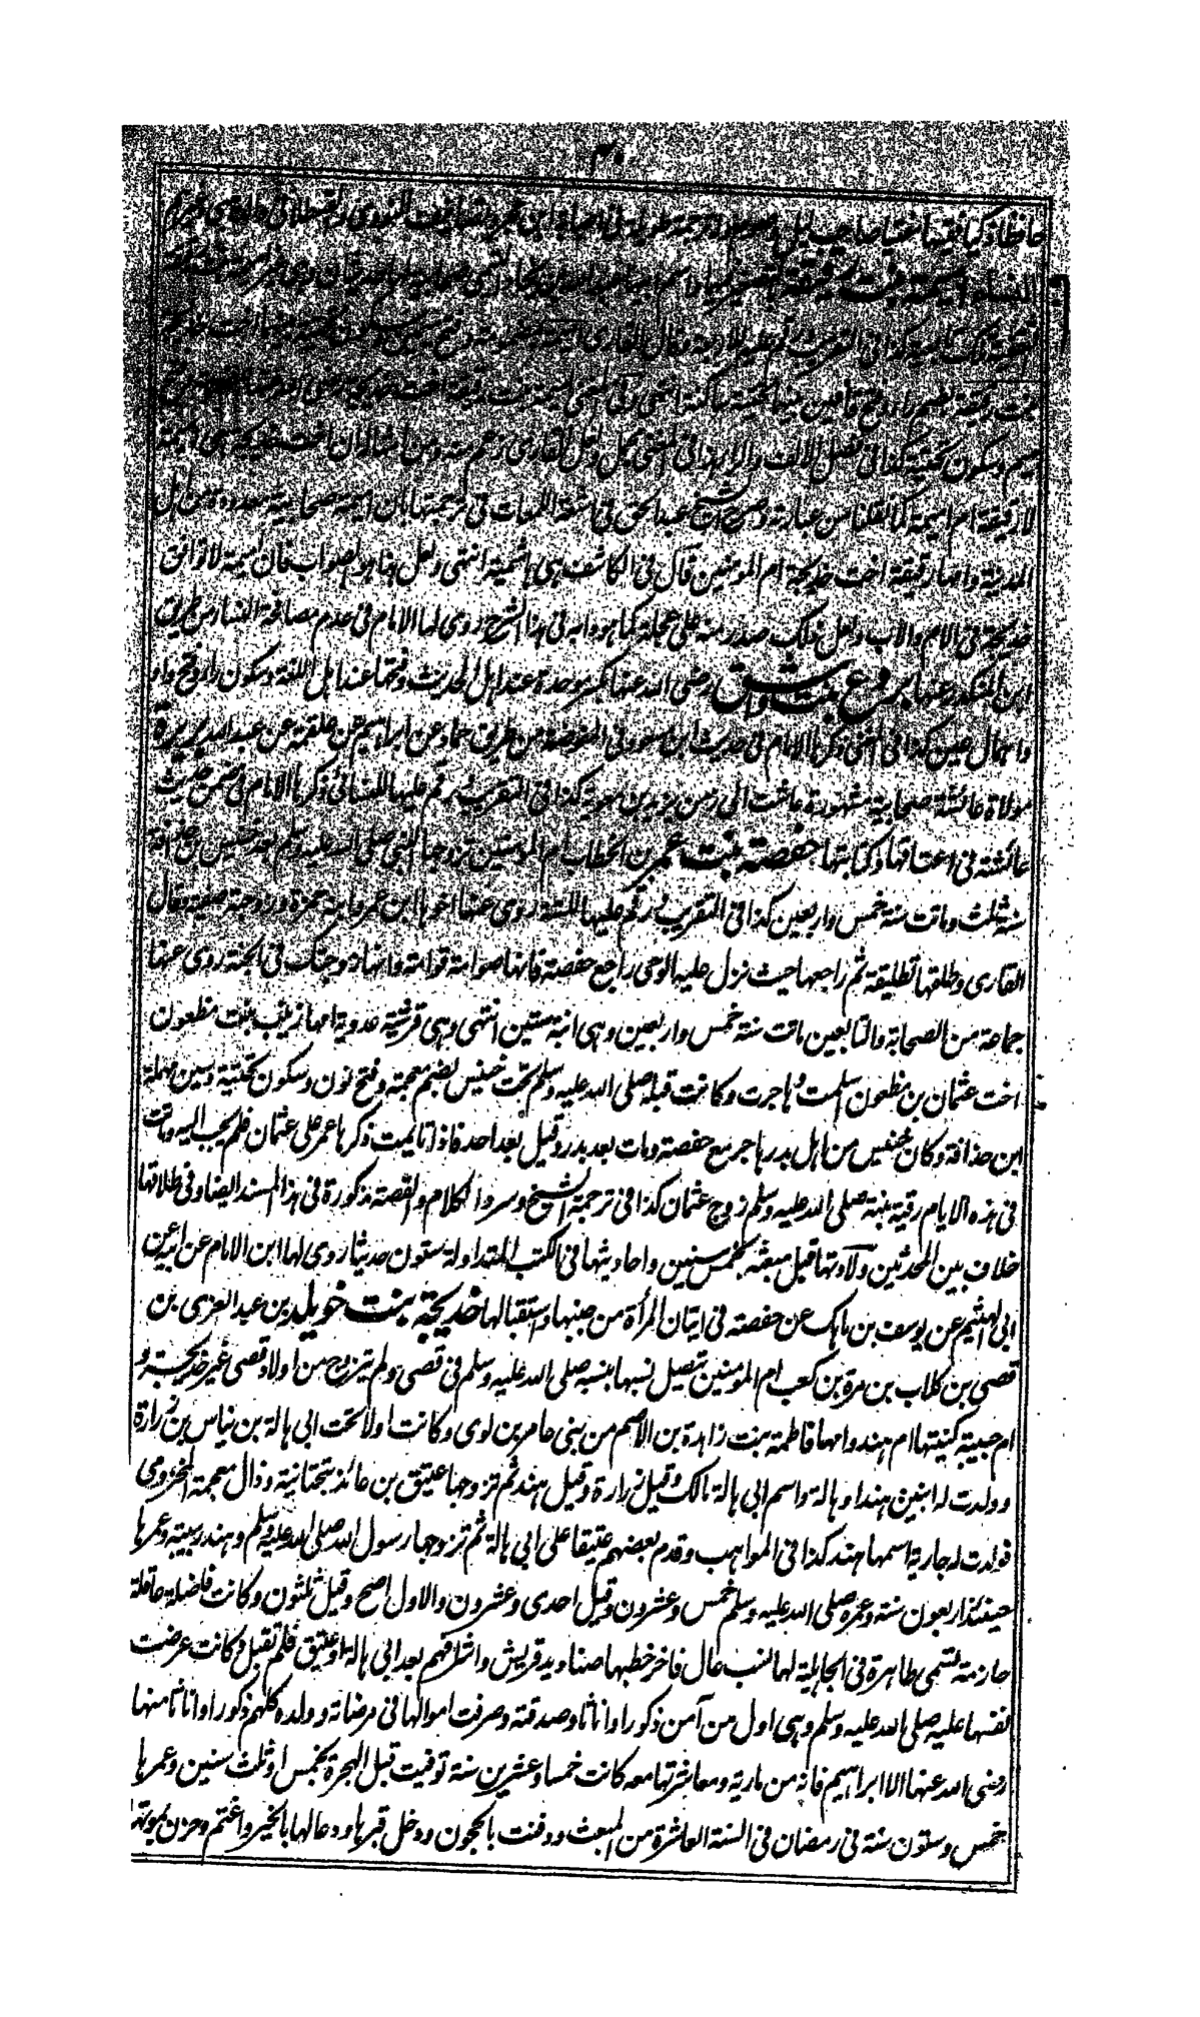 حافظا ذكيا فقيها
النساء اميمة بنت رقيقة
كذا فى التقريب رقم عليه للاربعة وقال القارى اميمة
بنت رقيقة بضم راء وفتح قافين بينهما تحتية ساكنة انتهى وفى المغنى اميمة بنت رقيقة اخت خديجة رضى الله عنها
ميم وسكون تحتية كذا فى فصل الالف والراء
لا رقيقة ام اميمة كما نقلنا من عبارته وصرح الشيخ عبد الحق فى اشعة اللمعات فى ترجمتها بان اميمة صحابية معدودة من اهل
المدينة وامها رقيقة اخت خديجة ام المؤمنين قال فى الكاشف هى هاشمية انتهى ولعل هذا هو الصواب فان اميمة لا توافق
خديجة فى الام والاب ولعل ذلك صدر منه على عجلة كما هو دابه فى هذا الشرح روى لها الامام فى عدم مصافحة النساء من طريق
ابن المنكدر عنها بروع بنت واشق رضى الله عنها بكسر موحدة عند اهل الحديث وفتحها عند اهل اللغة وسكون راء وفتح واو
واهمال عين كذا فى المغنى ذكرها الامام فى حديث ابن مسعود فى المفوضة من طريق حماد عن ابراهيم عن علقمة عن عبد الله بريرة
مولاة عائشة صحابية مشهورة عاشت الى زمن يزيد بن معوية كذا فى التقريب رقم عليها للنسائى ذكرها الامام فى ضمن حديث
عائشة فى اعتاقها وكتابتها حفصة بنت عمر بن الخطاب ام المؤمنين تزوجها النبى صلى الله عليه وسلم بعد خنيس بن حذافة
سنة ثلث وماتت سنة خمس واربعين كذا فى التقريب رقم عليها للستة روى عنها اخوها ابن عمر وابنه حمزة وزوجته صفية وقال
القارى وطلقها تطليقة ثم راجعها حيث نزل عليه الوحى راجع حفصة فانها صوامة قوامة وانها زوجتك فى الجنة روى عنها
جماعة من الصحابة والتابعين ماتت سنة خمس واربعين وهى ابنة ستين انتهى وهى قرشية عدوية امها زينب بنت مظعون
اخت عثمان بن مظعون اسلمت وهاجرت وكانت قبله صلى الله عليه وسلم تحت خنيس بضم معجمة وفتح نون وسكون تحتية وسين مهملة
ابن حذافة وكان خنيس من اهل بدر هاجر مع حفصة ومات بعد بدر وقيل بعد احد فاذا تايمت ذكرها عمر على عثمان فلم يجب اليه وماتت
فى هذه الايام رقية بنته صلى الله عليه وسلم زوج عثمان كذا فى ترجمة الشيخ وسرد الكلام والقصة مذكورة فى هذا المسند ايضا وفى طلاقها
خلاف بين المحدثين ولادتها قبل مبعثه بخمس سنين واحاديثها فى الكتب المتداولة ستون حديثا روى لها ابن الامام عن ابيه عن
ابى الهيثم عن يوسف بن ماهك عن حفصة فى اتيان المرأة من جنبها واستقبالها خديجة بنت خويلد بن عبد العزى بن
قصى بن كلاب بن مرة بن كعب ام المؤمنين تتصل نسبها بنسبه صلى الله عليه وسلم فى قصى ولم يتزوج من اولاد قصى غير خديجة و
ام حبيبة كنيتها ام هند وامها فاطمة بنت زاهدة بن الاصم من بنى عامر بن لوى وكانت اولا تحت ابى هالة بن نباس بن زرارة
وولدت له ابنين هندا وهالة واسم ابى هالة مالك وقيل زرارة وقيل هند ثم تزوجها عتيق بن عائذ بتحتانية وذال معجمة المخزومى
فولدت له جارية اسمها هند كذا فى المواهب وقدم بعضهم عتيقا على ابى هالة ثم تزوجها رسول الله صلى الله عليه وسلم وهند ربيبته وعمرها
حينئذ اربعون سنة وعمره صلى الله عليه وسلم خمس وعشرون وقيل احدى وعشرون والاول اصح وقيل ثلثون وكانت فاضلة عاقلة
حازمة تسمى طاهرة فى الجاهلية لها نسب عال فاخر خطبها صناديد قريش واشرافهم بعد ابى هالة او عتيق فلم تقبل وكانت عرضت
نفسها عليه صلى الله عليه وسلم وهى اول من آمن ذكورا واناثا وصدقته وصرفت اموالها فى مرضاته وولده كلهم ذكورا واناثا منها
رضى الله عنها الا ابراهيم فانه من مارية ومعاشرتها معه كانت خمسا وعشرين سنة توفيت قبل الهجرة بخمس او ثلث سنين وعمرها
خمس وستون سنة فى رمضان فى السنة العاشرة من المبعث ودفنت بالحجون ودخل قبرها ودعا لها بالخير واغتم وحزن بموتها